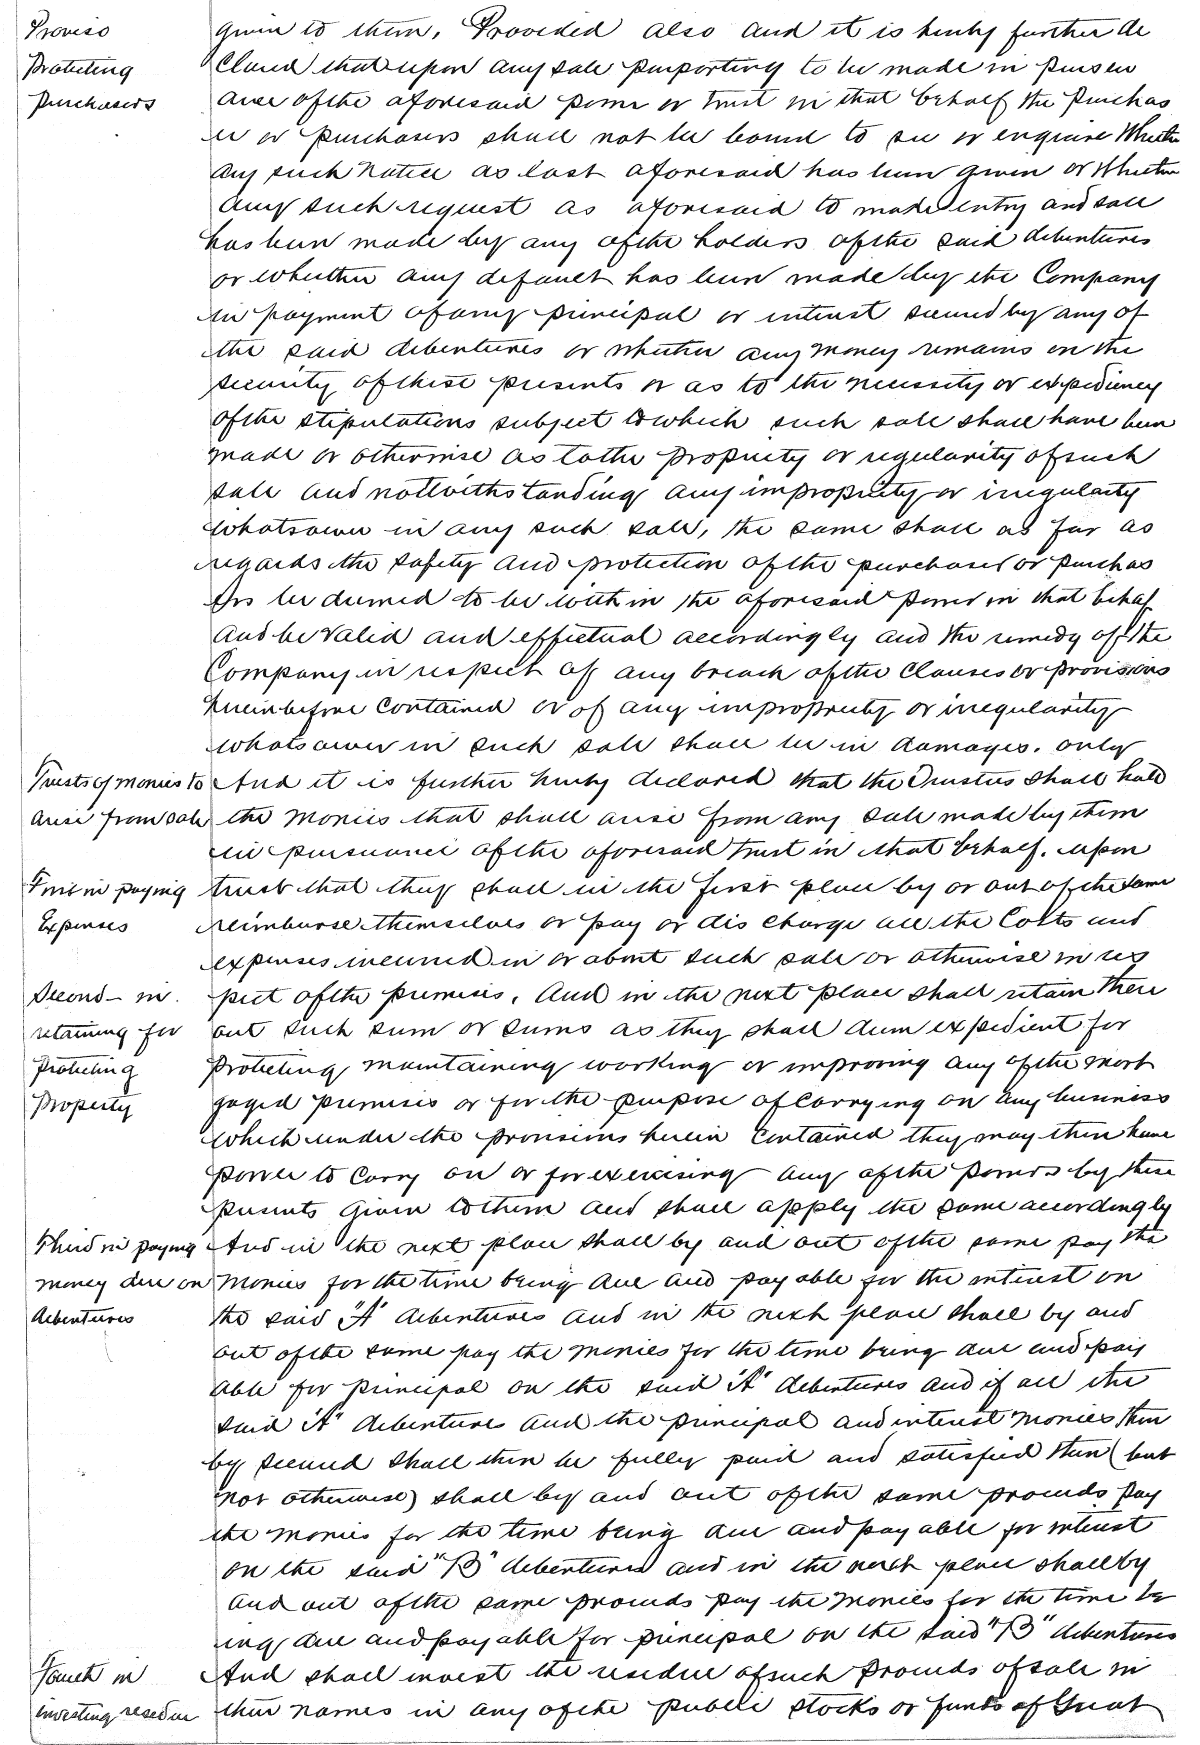 Proviso given to them, Provided also and it is hereby further de
Protecting clared that upon any sale purporting to be made in pursu
purchasers ance of the aforesaid power or trust in that behalf the purchas
er or purchasers shall not be bound to see or enquire whether
any such notice as last aforesaid has been given or whether
any such request as aforesaid to make entry and sale
has been made by any of the holders of the said debentures
or whether any default has been made by the Company
in payment of any principal or interest secured by any of
the said debentures or whether any money remains on the
security of these presents or as to the necessity or expediency
of the stipulations subject to which such sale shall have been
made or otherwise as to the propriety or regularity of such
sale and notwithstanding any impropriety or irregularity
whatsoever in any such sale, the same shall as far as
regards the safety and protection of the purchaser or purchas
ers be deemed to be within the aforesaid power in that behalf
and be valid and effectual accordingly and the remedy of the
Company in respect of any breach of the clauses or provisions
hereinbefore contained or of any impropriety or irregularity
whatsoever in such sale shall be in damages. only
Trusts of monies to And it is further hereby declared that the Trustees shall hold
arise from sale the monies that shall arise from any sale made by them
in pursuance of the aforesaid trust in that behalf. upon
First in paying trust that they shall in the first place by or out of the same
Expenses reimburse themselves or pay or discharge all the Costs and
expenses incurred in or about such sale or otherwise in res
Second - in. pect of the premises, And in the next place shall retain there
retaining for out such sum or sums as they shall deem expedient for
Protecting Protecting maintaining working or improving any of the mort
Property gaged premises or for the purpose of carrying on any business
which under the provisions herein contained they may then have
power to carry on or for exercising any of the powers by these
presents given to them and shall apply the same accordingly
Third in paying And in the next place shall by and out of the same pay the
money due on monies for the time being due and payable for the interest on
debentures the said "A" debentures and in the next place shall by and
out of the same pay the monies for the time being due and pay
able for principal on the said "A" debentures and if all the
said "A" debentures and the principal and interest monies there
by secured shall then be fully paid and satisfied then (but
not otherwise) shall by and out of the same proceeds pay
the monies for the time being due and payable for interest
on the said "B" debentures and in the next place shall by
and out of the same proceeds pay the monies for the time be
ing due and payable for principal on the said "B" debentures
Fourth in And shall invest the residue of such proceeds of sale in
investing residue their names in any of the public stocks or funds of Great